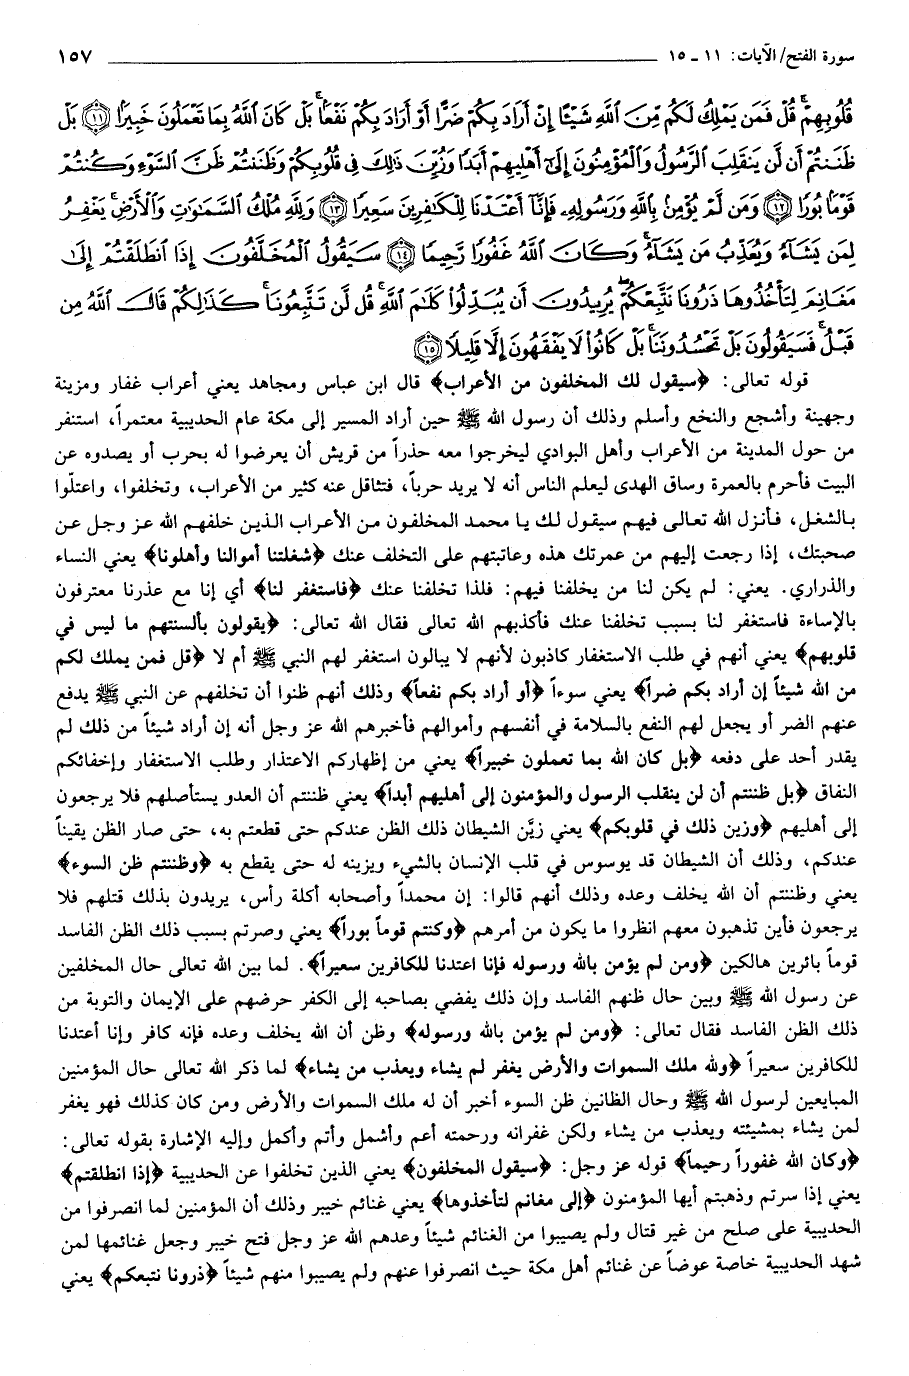 سورة الفتح/ الآيات: ١١ ـ ١٥ ١٥٧
قُلُوبِهِمْ قُلْ فَمَن يَمْلِكُ لَكُم مِّنَ اللَّهِ شَيْئًا إِنْ أَرَادَ بِكُمْ ضَرًّا أَوْ أَرَادَ بِكُمْ نَفْعًا بَلْ كَانَ اللَّهُ بِمَا تَعْمَلُونَ خَبِيرًا ﴿١١﴾ بَلْ
ظَنَنتُمْ أَن لَّن يَنقَلِبَ الرَّسُولُ وَالْمُؤْمِنُونَ إِلَىٰ أَهْلِيهِمْ أَبَدًا وَزُيِّنَ ذَٰلِكَ فِي قُلُوبِكُمْ وَظَنَنتُمْ ظَنَّ السَّوْءِ وَكُنتُمْ
قَوْمًا بُورًا ﴿١٢﴾ وَمَن لَّمْ يُؤْمِن بِاللَّهِ وَرَسُولِهِ فَإِنَّا أَعْتَدْنَا لِلْكَافِرِينَ سَعِيرًا ﴿١٣﴾ وَلِلَّهِ مُلْكُ السَّمَاوَاتِ وَالْأَرْضِ يَغْفِرُ
لِمَن يَشَاءُ وَيُعَذِّبُ مَن يَشَاءُ وَكَانَ اللَّهُ غَفُورًا رَّحِيمًا ﴿١٤﴾ سَيَقُولُ الْمُخَلَّفُونَ إِذَا انطَلَقْتُمْ إِلَىٰ
مَغَانِمَ لِتَأْخُذُوهَا ذَرُونَا نَتَّبِعْكُمْ يُرِيدُونَ أَن يُبَدِّلُوا كَلَامَ اللَّهِ قُل لَّن تَتَّبِعُونَا كَذَٰلِكُمْ قَالَ اللَّهُ مِن
قَبْلُ فَسَيَقُولُونَ بَلْ تَحْسُدُونَنَا بَلْ كَانُوا لَا يَفْقَهُونَ إِلَّا قَلِيلًا ﴿١٥﴾
قوله تعالى: ﴿سيقول لك المخلفون من الأعراب﴾ قال ابن عباس ومجاهد يعني أعراب غفار ومزينة
وجهينة وأشجع والنخع وأسلم وذلك أن رسول الله ﷺ حين أراد المسير إلى مكة عام الحديبية معتمراً، استنفر
من حول المدينة من الأعراب وأهل البوادي ليخرجوا معه حذراً من قريش أن يعرضوا له بحرب أو يصدوه عن
البيت فأحرم بالعمرة وساق الهدى ليعلم الناس أنه لا يريد حرباً، فتثاقل عنه كثير من الأعراب، وتخلفوا، واعتلّوا
بالشغل، فأنزل الله تعالى فيهم سيقول لك يا محمد المخلفون من الأعراب الذين خلفهم الله عز وجل عن
صحبتك، إذا رجعت إليهم من عمرتك هذه وعاتبتهم على التخلف عنك ﴿شغلتنا أموالنا وأهلونا﴾ يعني النساء
والذراري. يعني: لم يكن لنا من يخلفنا فيهم: فلذا تخلفنا عنك ﴿فاستغفر لنا﴾ أي إنا مع عذرنا معترفون
بالإساءة فاستغفر لنا بسبب تخلفنا عنك فأكذبهم الله تعالى فقال الله تعالى: ﴿يقولون بألسنتهم ما ليس في
قلوبهم﴾ يعني أنهم في طلب الاستغفار كاذبون لأنهم لا يبالون استغفر لهم النبي ﷺ أم لا ﴿قل فمن يملك لكم
من الله شيئاً إن أراد بكم ضراً﴾ يعني سوءاً ﴿أو أراد بكم نفعاً﴾ وذلك أنهم ظنوا أن تخلفهم عن النبي ﷺ يدفع
عنهم الضر أو يجعل لهم النفع بالسلامة في أنفسهم وأموالهم فأخبرهم الله عز وجل أنه إن أراد شيئاً من ذلك لم
يقدر أحد على دفعه ﴿بل كان الله بما تعملون خبيراً﴾ يعني من إظهاركم الاعتذار وطلب الاستغفار وإخفائكم
النفاق ﴿بل ظننتم أن لن ينقلب الرسول والمؤمنون إلى أهليهم أبداً﴾ يعني ظننتم أن العدو يستأصلهم فلا يرجعون
إلى أهليهم ﴿وزين ذلك في قلوبكم﴾ يعني زيَّن الشيطان ذلك الظن عندكم حتى قطعتم به، حتى صار الظن يقيناً
عندكم، وذلك أن الشيطان قد يوسوس في قلب الإنسان بالشيء ويزينه له حتى يقطع به ﴿وظننتم ظن السوء﴾
يعني وظننتم أن الله يخلف وعده وذلك أنهم قالوا: إن محمداً وأصحابه أكلة رأس، يريدون بذلك قتلهم فلا
يرجعون فأين تذهبون معهم انظروا ما يكون من أمرهم ﴿وكنتم قوماً بوراً﴾ يعني وصرتم بسبب ذلك الظن الفاسد
قوماً بائرين هالكين ﴿ومن لم يؤمن بالله ورسوله فإنا اعتدنا للكافرين سعيراً﴾. لما بين الله تعالى حال المخلفين
عن رسول الله ﷺ وبين حال ظنهم الفاسد وإن ذلك يفضي بصاحبه إلى الكفر حرضهم على الإيمان والتوبة من
ذلك الظن الفاسد فقال تعالى: ﴿ومن لم يؤمن بالله ورسوله﴾ وظن أن الله يخلف وعده فإنه كافر وإنا أعتدنا
للكافرين سعيراً ﴿ولله ملك السموات والأرض يغفر لم يشاء ويعذب من يشاء﴾ لما ذكر الله تعالى حال المؤمنين
المبايعين لرسول الله ﷺ وحال الظانين ظن السوء أخبر أن له ملك السموات والأرض ومن كان كذلك فهو يغفر
لمن يشاء بمشيئته ويعذب من يشاء ولكن غفرانه ورحمته أعم وأشمل وأتم وأكمل وإليه الإشارة بقوله تعالى:
﴿وكان الله غفوراً رحيماً﴾ قوله عز وجل: ﴿سيقول المخلفون﴾ يعني الذين تخلفوا عن الحديبية ﴿إذا انطلقتم﴾
يعني إذا سرتم وذهبتم أيها المؤمنون ﴿إلى مغانم لتأخذوها﴾ يعني غنائم خيبر وذلك أن المؤمنين لما انصرفوا من
الحديبية على صلح من غير قتال ولم يصيبوا من الغنائم شيئاً وعدهم الله عز وجل فتح خيبر وجعل غنائمها لمن
شهد الحديبية خاصة عوضاً عن غنائم أهل مكة حيث انصرفوا عنهم ولم يصيبوا منهم شيئاً ﴿ذرونا نتبعكم﴾ يعني